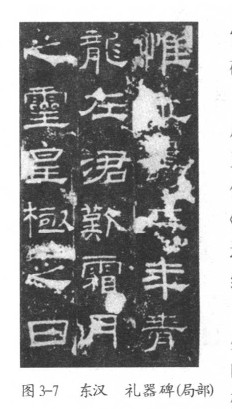 惟永壽二年青
龍在涒歎霜月
之靈皇極之日
图 3-7 东汉 礼器碑(局部)